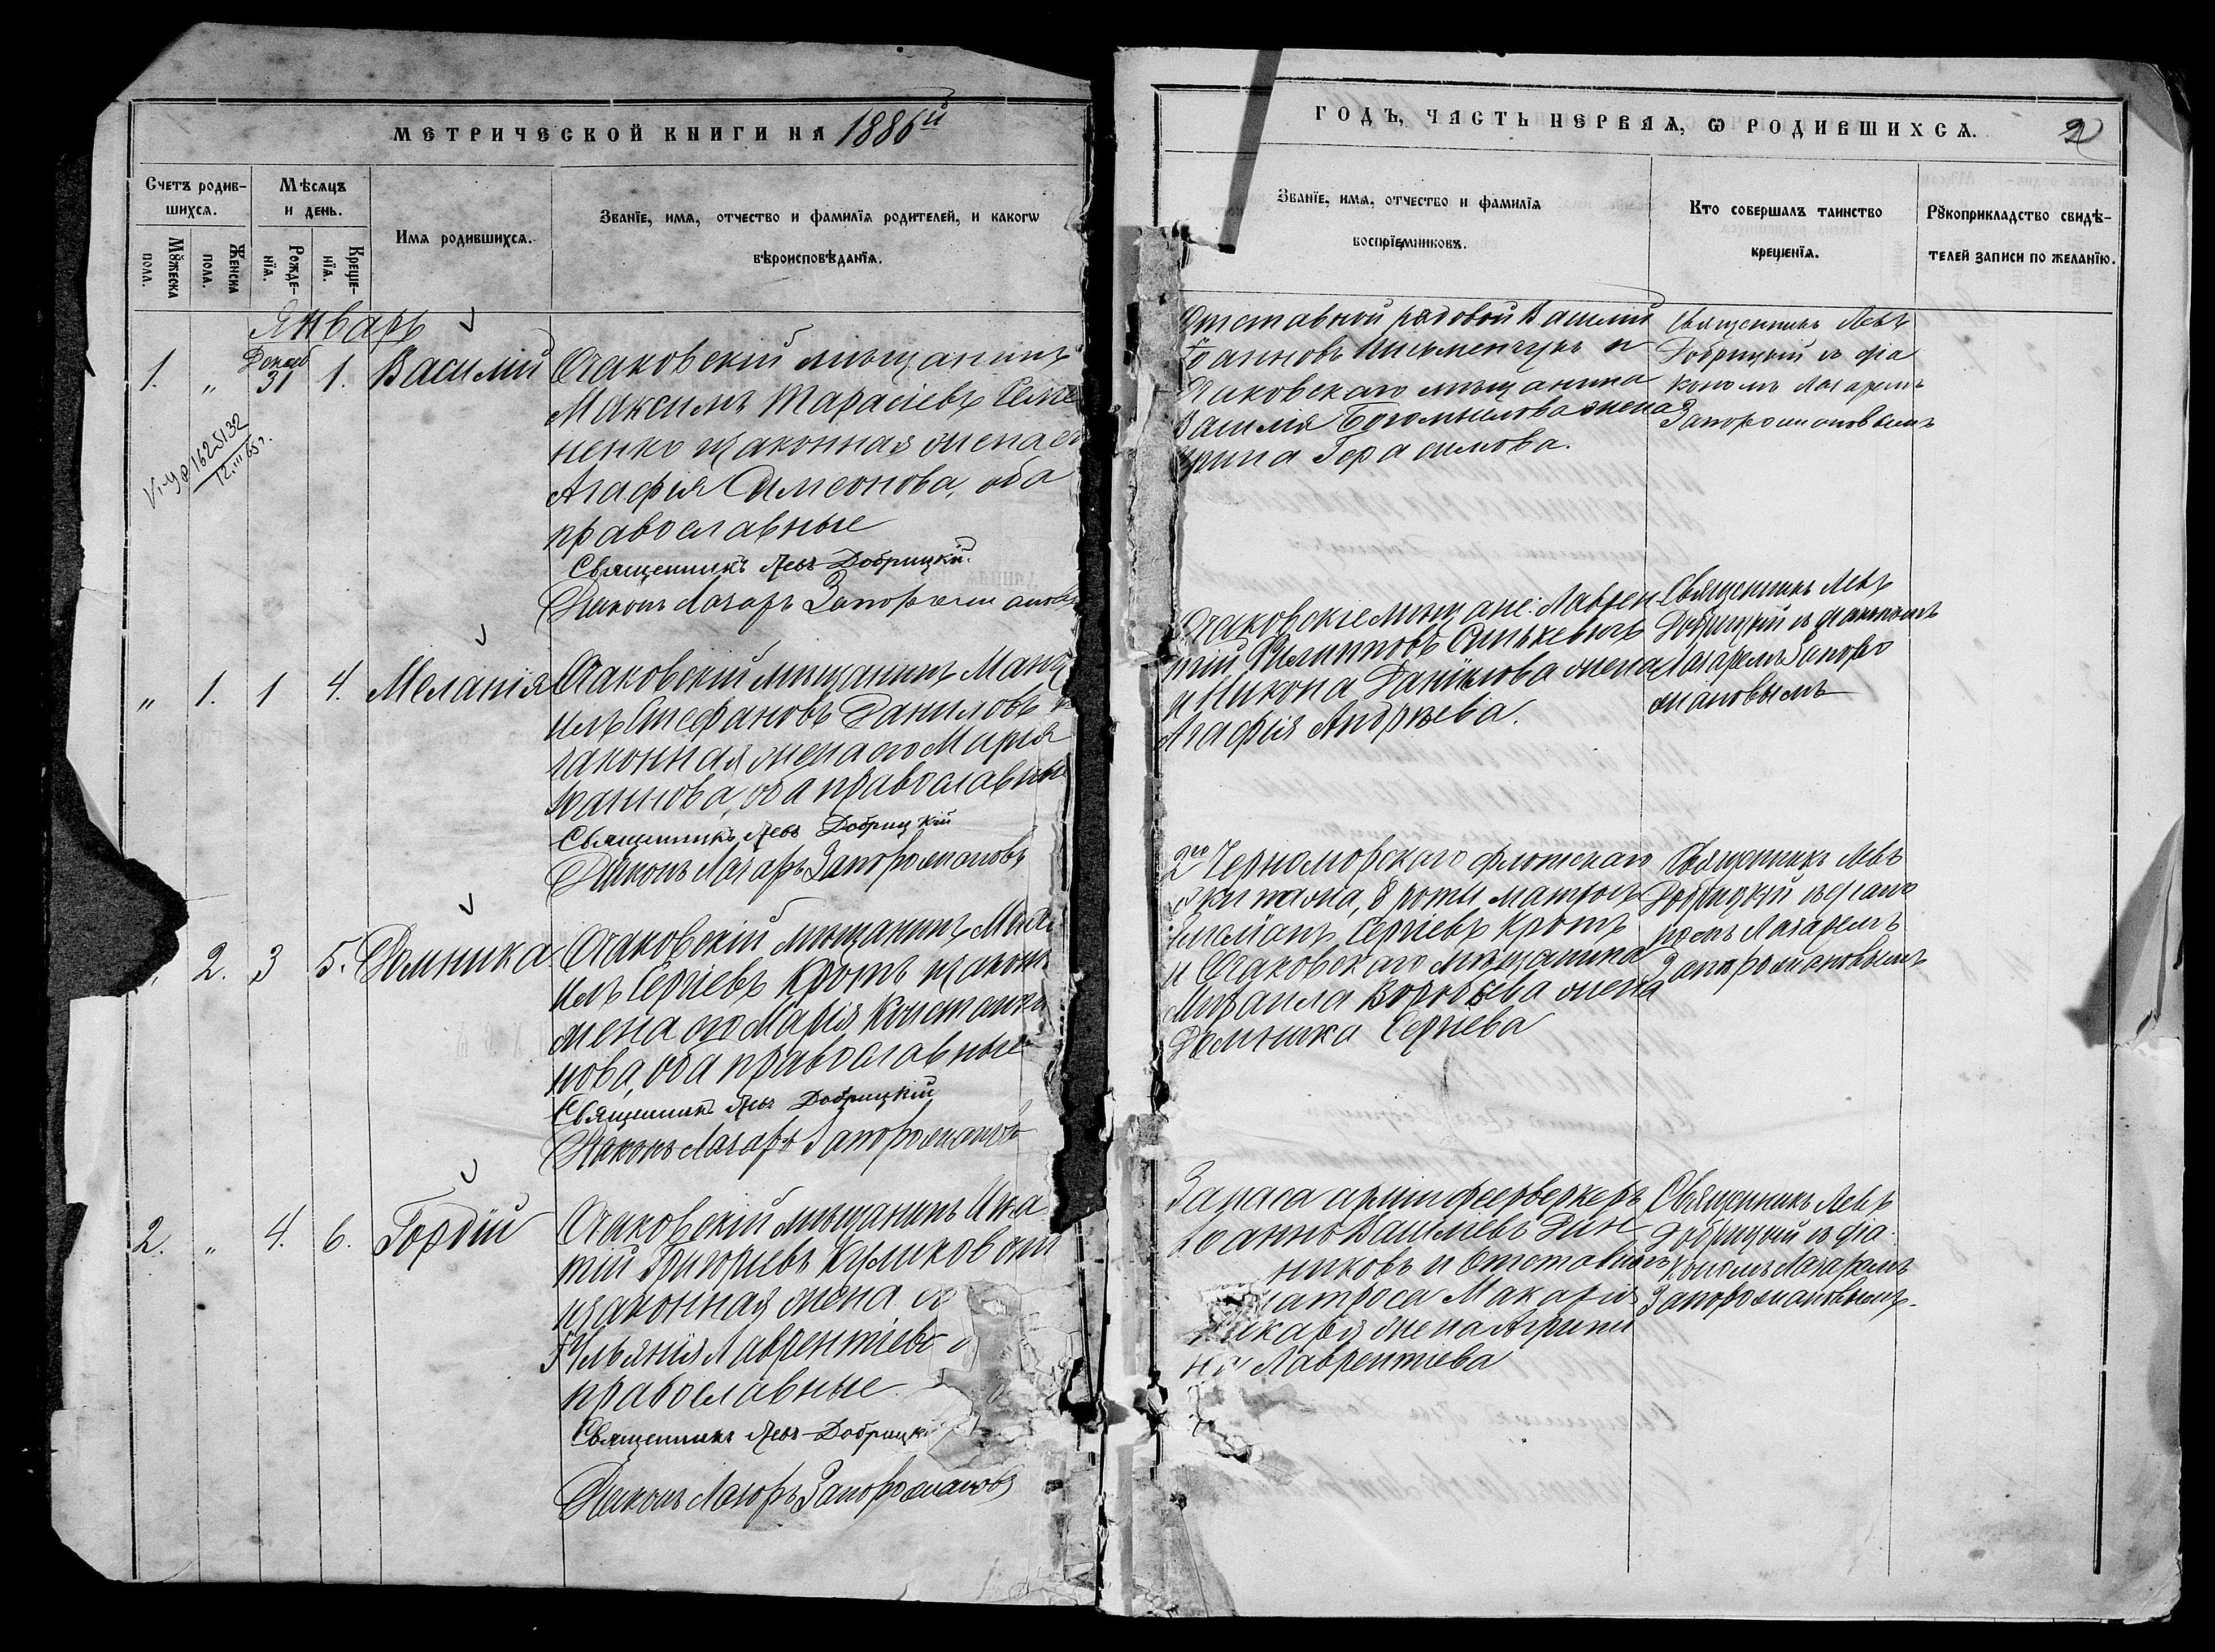 МЕТРИЧЕСКОЙ КНИГИ НА 1886й
ГОДЪ, ЧАСТЬ ПЕРВАЯ, Ѡ РОДИВШИХСѦ.
2
Счетъ родив-
шихсѧ.
Мѣсѧцъ
и день.
Имѧ родившихсѧ.
Званїе, имѧ, отчество и фамилїѧ родителей, и какогѡ
вѣроисповѣданїѧ.
Мꙋжеска
пола.
Женска
пола.
Рожде-
нїѧ.
Креще-
нїѧ.
Званїе, имѧ, отчество и фамилїѧ
воспрїемниковъ.
Кто совершалъ таинство
крещенїѧ.
Рꙋкоприкладство свидѣ-
телей записи по желанїю.
Январь
1.
„
Декаб
31
1.
Василій
Очаковскій мѣщанинъ
Максимъ Тарасіевъ Семе
ненко и законная жена ег
Агафія Симеонова, оба
православные
Священникъ Левъ Добрицкій.
Діаконъ Лазарь Запорожановъ
12.III 65 г.
Отставной рядовой Василій
Іоанновъ Письменчукъ и
Очаковскаго мѣщанина
Василія Богомыслова жена
Ирина Герасимова.
Священникъ Левъ
Добрицкій съ діа
кономъ Лазаремъ
Запорожановымъ
„
1.
1
4.
Меланія
Очаковскій мѣщанинъ Ману
илъ Стефановъ Даниловъ и
законная жена его Марія
оба православны
Священникъ Левъ Добрицкій
Діаконъ Лазарь Запорожановъ
Очаковскіе мѣщане: Лаврен
тій Филипповъ Синькевичъ
и Никона Данилова жена
Агафія Андреева.
Священникъ Левъ
Добрицкій съ діакономъ
Лазаремъ Запоро
жановымъ
2.
3
5.
Домника
Очаковскій мѣщанинъ Миха
илъ Сергіевъ Кротъ и закон
жена его Марія Константи
нова, оба православные
Священникъ Левъ Добрицкій
Діаконъ Лазарь Запорожановъ
2го Черноморскаго флотскаго
экипажа, 8 роты матросъ
Сергіевъ Кротъ
и Очаковскаго мѣщанина
Михаила Воробьева жена
Домника Сергіева
Священникъ Левъ
Добрицкій съ діако
номъ Лазаремъ
Запорожановымъ
2.
„
4.
6.
Гордій
Очаковскій мѣщанинъ Игна
тій Григоріевъ
и законная жена ег
Ульянія Лаврентіева о
православные
Священникъ Левъ Добрицкі
Діаконъ Лазарь Запорожановъ
Запаса арміи фейерверкеръ
Іоаннъ Василіевъ Дин
никовъ и Отставнаго
матроса Макарія
жена Агрипи
на Лаврентіева
Священникъ Левъ
Добрицкій съ діа
кономъ Лазаремъ
Запорожановымъ.